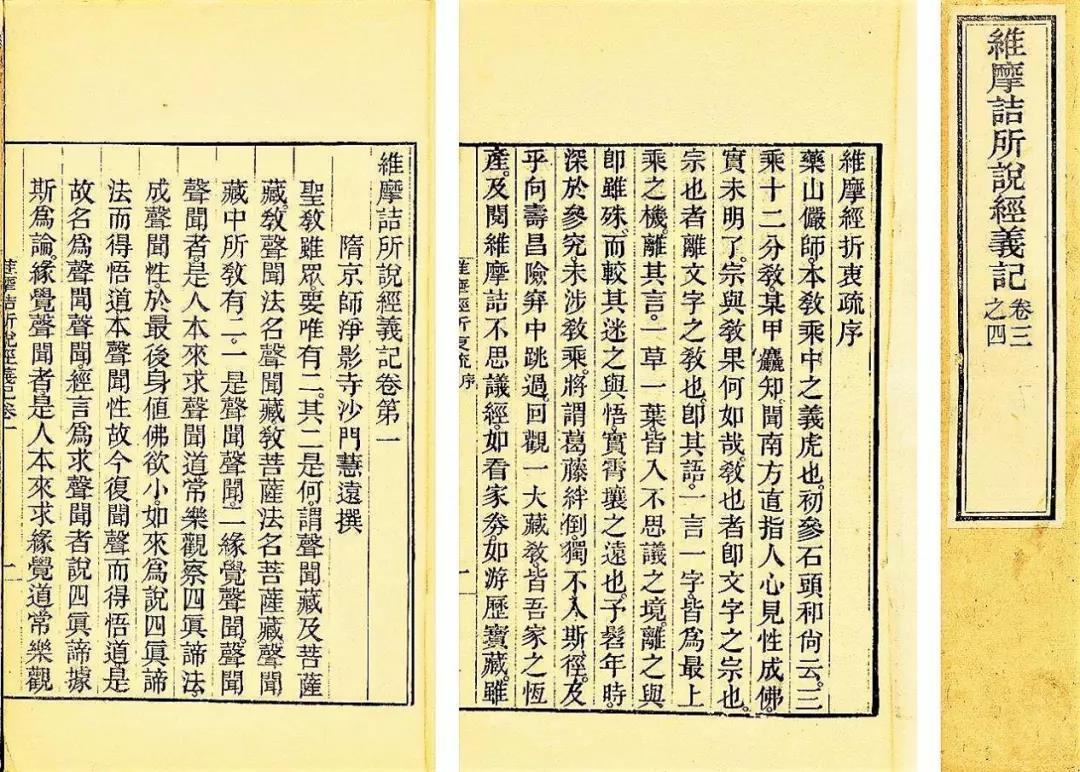 維摩詰所說經義記 卷三之四
維摩經折衷疏序
藥山儼師。本教乘中之義虎也。初參石頭和尙云。三
乘十二分教。某甲麤知。聞南方直指人心見性成佛。
實未明了。宗與教果何如哉。教也者卽文字之宗也。
宗也者離文字之教也。卽其語。一言一字。皆爲最上
乘之機。離其言。一草一葉。皆入不思議之境。離之與
卽雖殊。而較其迷之與悟。實霄壤之遠也。予髫年時。
深於參究未涉教乘。將謂葛藤絆倒。獨不入斯徑。及
乎向壽昌險穽中跳過。回觀一大藏教。皆吾家之恆
產。及閱維摩詰不思議經。如看家劵。如游歷寶藏。雖
維摩詰所說經義記卷第一
隋京師淨影寺沙門慧遠撰
聖教雖眾。要唯有二。其二是何。謂聲聞藏及菩薩
藏。教聲聞法名聲聞藏。教菩薩法名菩薩藏。聲聞
藏中所教有二。一是聲聞聲聞。二緣覺聲聞。聲聞
聲聞者。是人本來求聲聞道常樂觀察四眞諦法。
成聲聞性。於最後身值佛欲小。如來爲說四眞諦
法而得悟道本聲聞性故今復聞聲而得悟道是
故名爲聲聞聲聞。經言爲求聲聞者說四眞諦據
斯爲論。緣覺聲聞者是人本來求緣覺道常樂觀